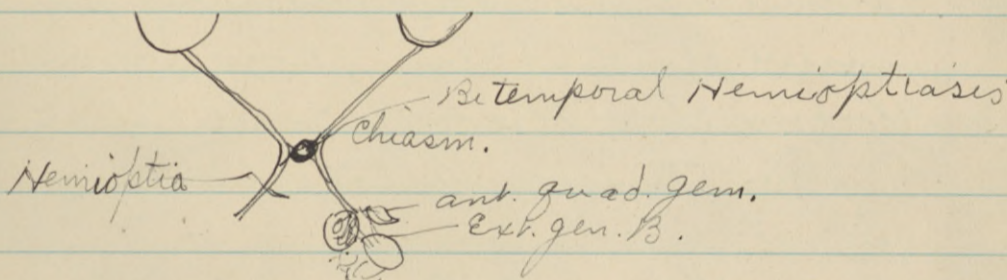 Bitemporal Hemioptiasis
Chiasm.
Hemioptia
ant. quad. gem.
Ext. gen. B.